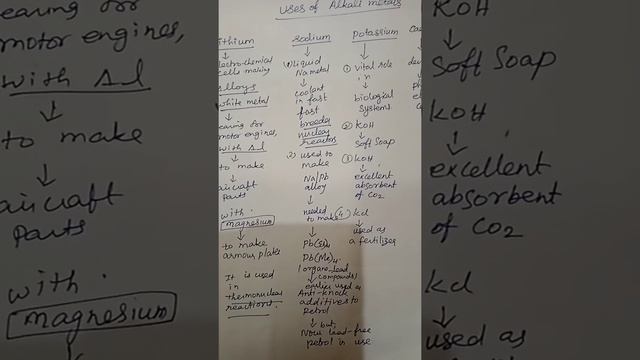 uses of Alkali metals
ithium
lectro-chemical
cells making
alloys
white metal
earing for
motor engines,
with Al
to make
aircraft
parts
with
magnesium
to make
armour plate
It is used
in
thermonuclear
reactions.
sodium
1) liquid
Na metal
coolant
in fast
fast
breeder
nuclear
reactor
2) used to
make
Na/Pb
alloy
needed
to make
Pb(Et)4
Pb(Me)4
organo-lead
compounds
earlier used as
Anti-knock
additives to
petrol
but
Now lead-free
petrol in use
potassium
1) vital role
in
biological
systems
2) KOH
soft soap
3) KOH
excellent
absorbent
of CO2
(4) kcl
used as
a fertilizer
earing for
motor engines,
with Al
to make
aircraft
parts
with
magnesium
KOH
Soft Soap
KOH
excellent
absorbent
of CO2
kcl
used as